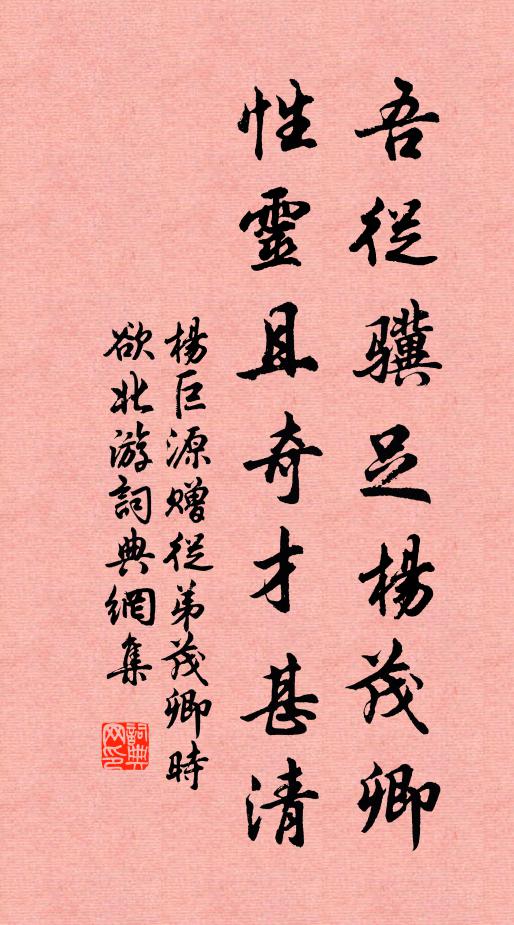 吾從骥足楊茂卿
性靈且奇才甚清
楊巨源赠從弟茂卿時
欲北游詞典網集
詞典
网印